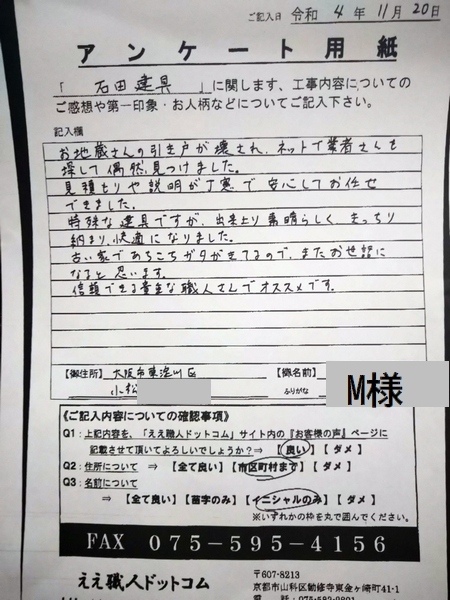 ご記入日 令和 4 年 11 月 20 日
アンケート用紙
「 石田建具 」に関します、工事内容についての
ご感想や第一印象・お人柄などについてご記入下さい。
記入欄
お地蔵さんの引き戸が壊され、ネットで業者さんを
探して偶然見つけました。
見積もりや説明が丁寧で安心してお任せ
できました。
特殊な建具ですが、出来上り素晴らしく、きっちり
納まり、快適になりました。
古い家であちこちガタがきてるので、またお世話に
なると思います。
信頼できる貴重な職人さんでオススメです。
【御住所】 大阪市東淀川区
小松
【御名前】
ふりがな
M様
《ご記入内容についての確認事項》
Q1：上記内容を、「ええ職人ドットコム」サイト内の『お客様の声』ページに
記載させて頂いてよろしいでしょうか？⇒ 【良い】 【ダメ】
Q2：住所について ⇒ 【全て良い】【市区町村まで】【ダメ】
Q3：名前について
⇒ 【全て良い】【苗字のみ】【イニシャルのみ】【ダメ】
※いずれかの枠を丸で囲んでください。
FAX 075-595-4156
ええ職人ドットコム
〒607-8213
京都市山科区勧修寺東金ヶ崎町41-1